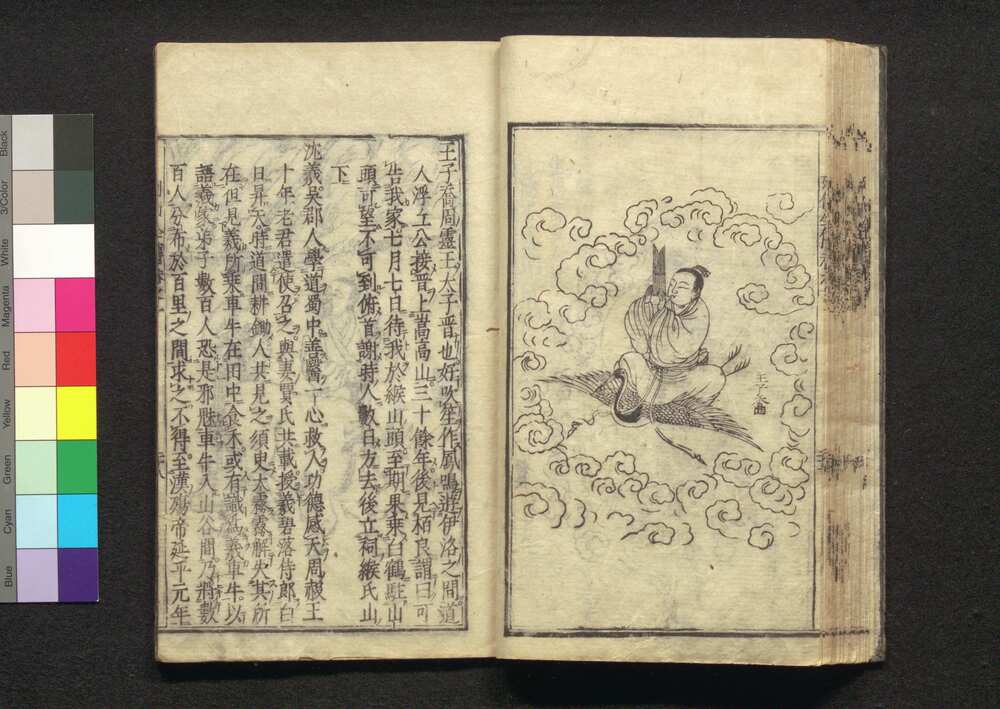 王子喬
王子喬周靈王太子晉也好吹笙作鳳鳴遊伊洛之間道
人浮丘公接晉上嵩高山三十餘年後見栢良謂曰可
告我家七月七日待我於緱山頭至期果乘白鶴駐山
頭可望不可到俯首謝時人數日方去後立祠緱氏山
下
沈羲吳郡人學道蜀中善醫一心救人功德感天周赧王
十年老君遣使召之與妻賈氏共載授羲碧落侍郎白
日昇天時道間耕鋤人共見之須臾大霧霧解失其所
在但見羲所乘車牛在田中食禾或有識爲羲車牛以
語羲家弟子數百人恐是邪魅車牛入山谷間乃將數
百人分布於百里之間求之不得至漢殤帝延平元年
Black
3/Color
White
Magenta
Red
Yellow
Green
Cyan
Blue